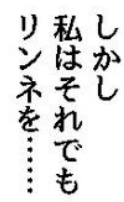 しかし
私はそれでも
リンネを……